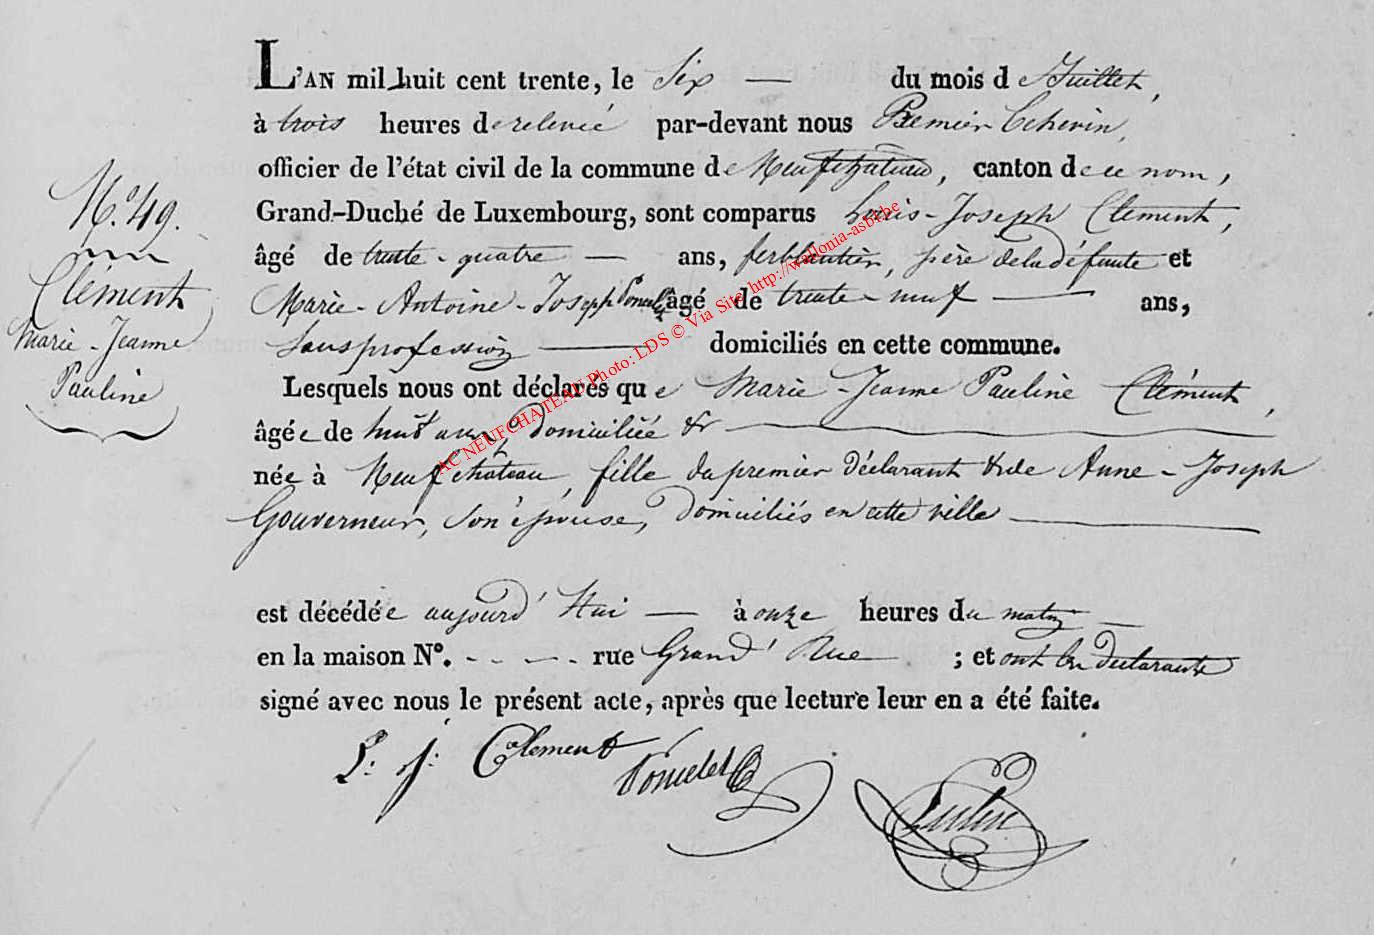 L'AN mil huit cent trente, le Six — du mois de Juillet,
à trois heures de relevée par-devant nous Premier Echevin,
officier de l'état civil de la commune de Neufchâteau, canton de ce nom,
Grand-Duché de Luxembourg, sont comparus Louis-Joseph Clement,
âgé de trente-quatre — ans, ferblantier, père de la défunte et
Marie-Antoine-Joseph âgé de trente-neuf — ans,
Sans profession — domiciliés en cette commune.
Lesquels nous ont déclarés que Marie-Jeanne Pauline Clément,
âgée de huit ans, domiciliée &r —
née à Neufchâteau, fille du premier déclarant & de Anne-Joseph
Gouverneur, son épouse, domiciliés en cette ville —
est décédée aujourd'Hui — à onze heures du matin —
en la maison N°. - - - - . rue Grand'Rue ; et ont les déclarants
signé avec nous le présent acte, après que lecture leur en a été faite.
L: J: Clement
N.° 49.
Clément
Marie-Jeanne
Pauline
AC NEUFCHATEAU Photo: LDS © Via Site http://wallonia-asbl.be